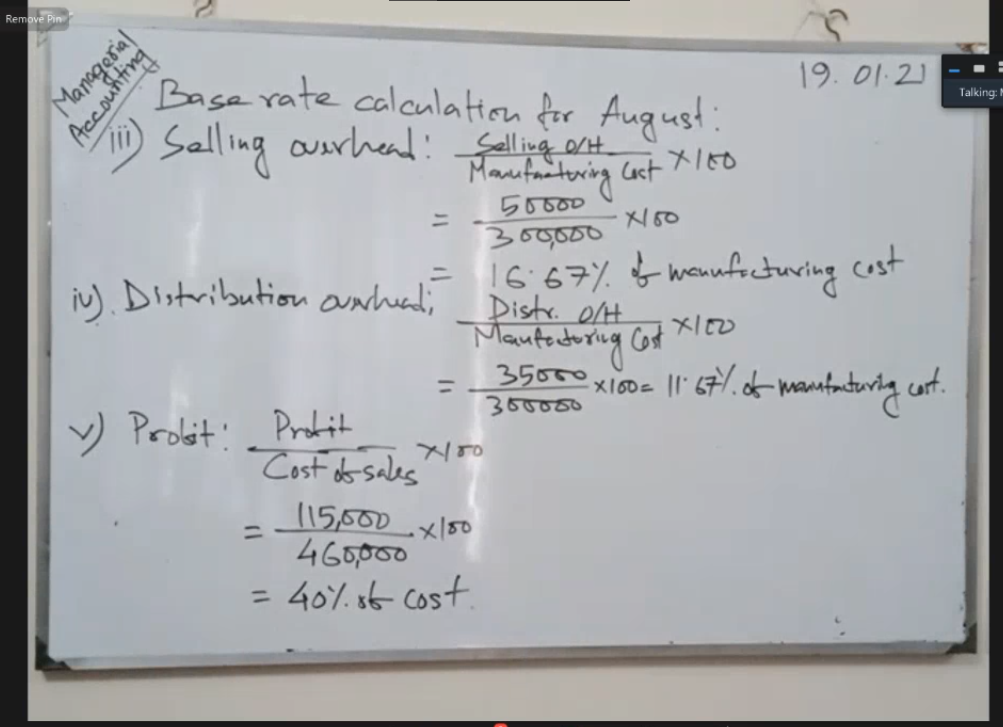 Remove Pin
Managerial Accounting
19.01.21
Talking:
Base rate calculation for August:
iii) Selling overhead: Selling O/H / Manufacturing Cost ×100
= 50000 / 300,000 ×100
= 16.67% of manufacturing cost
iv). Distribution overhead: Distr. O/H / Manufacturing Cost ×100
= 35000 / 300000 ×100 = 11.67% of manufacturing cost.
v) Profit: Profit / Cost of sales ×100
= 115,000 / 460,000 ×100
= 40% of cost.